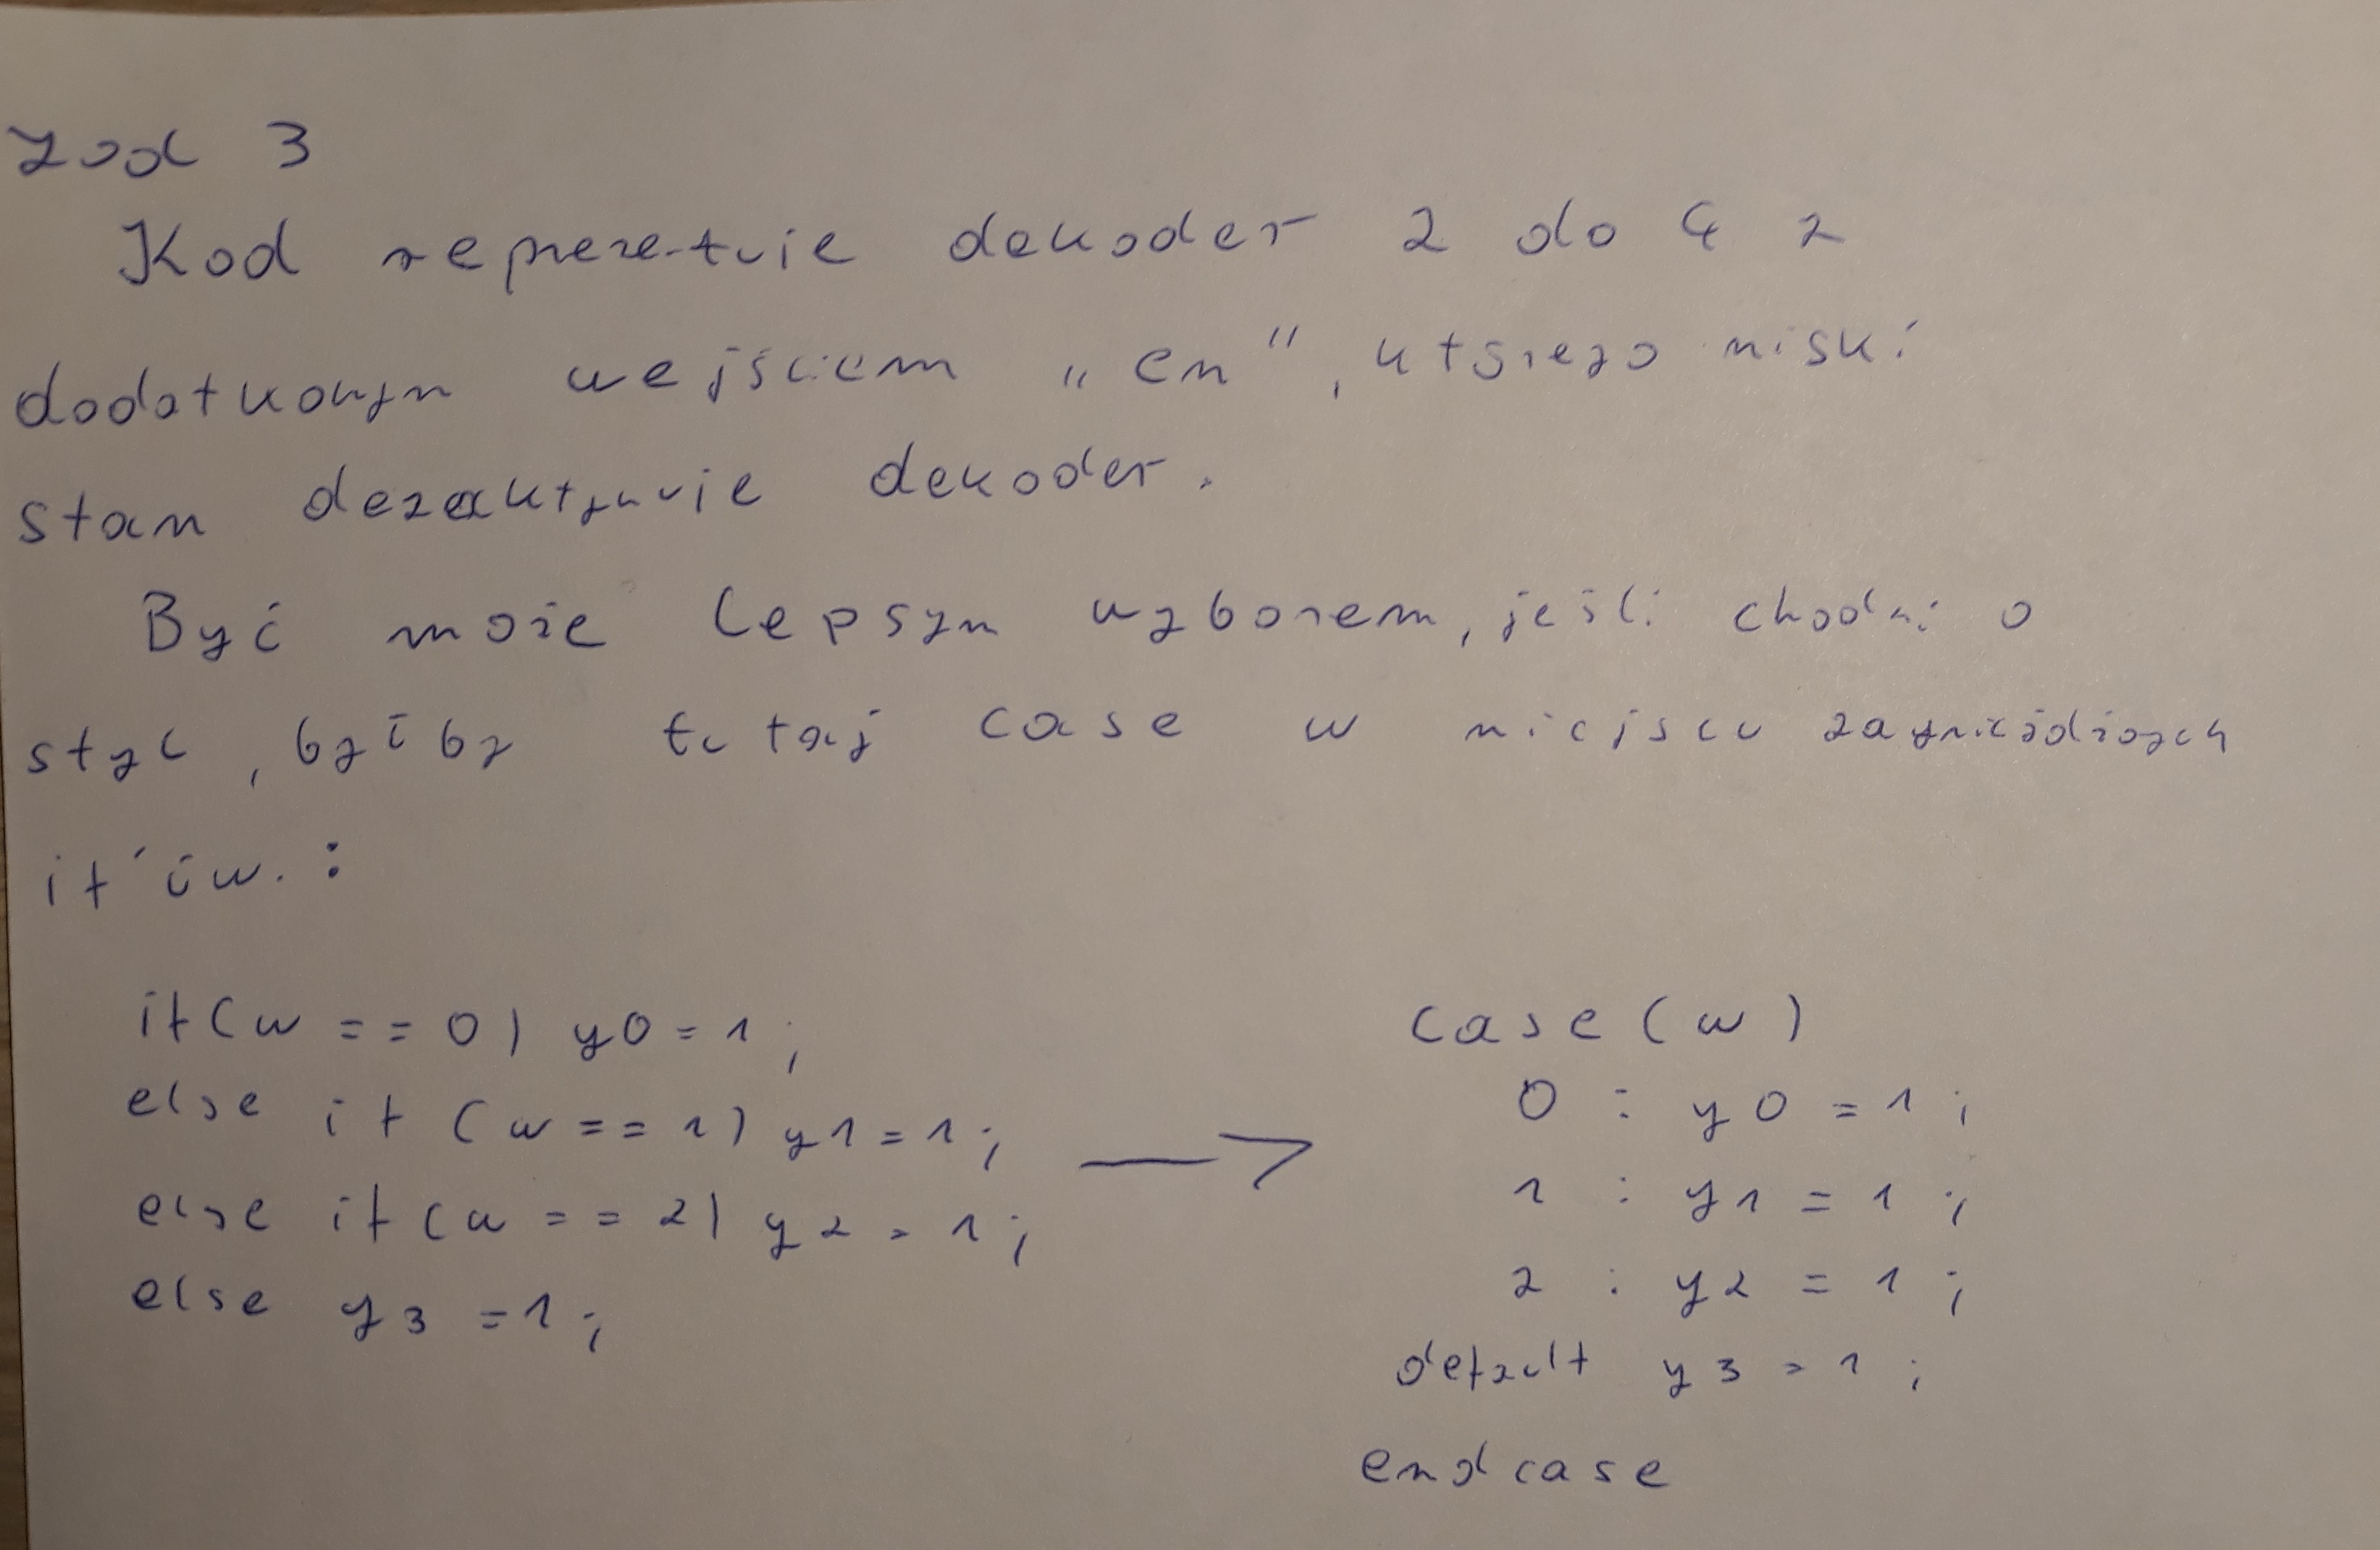 Zad 3
Kod reprezentuje dekoder 2 do 4 z
dodatkowym wejściem „en”, którego niski
stan dezaktywuje dekoder.
Być może lepszym wyborem, jeśli chodzi o
styl, byłby tutaj case w miejscu zagnieżdżonych
if'ów.:
if(w == 0) y0 = 1;
else if (w == 1) y1 = 1;
else if (w == 2) y2 = 1;
else y3 = 1;
case(w)
0 : y0 = 1;
1 : y1 = 1;
2 : y2 = 1;
default y3 = 1;
endcase